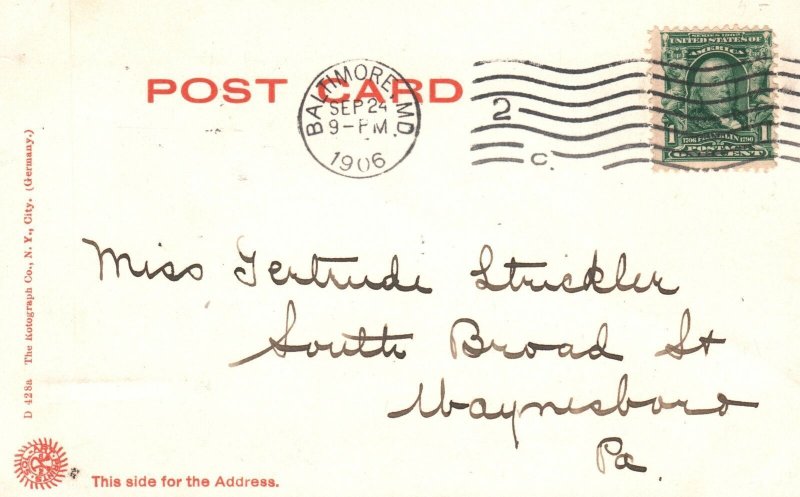 POST CARD
BALTIMORE, MD.
SEP 24
9-PM
1906
2
C.
SERIES 1902
UNITED STATES OF
AMERICA
1 1706 FRANKLIN 1790 1
POSTAGE
ONE CENT
Miss Gertrude Strickler
South Broad St
Waynesboro
Pa.
D 428a The Rotograph Co., N. Y., City. (Germany.)
This side for the Address.